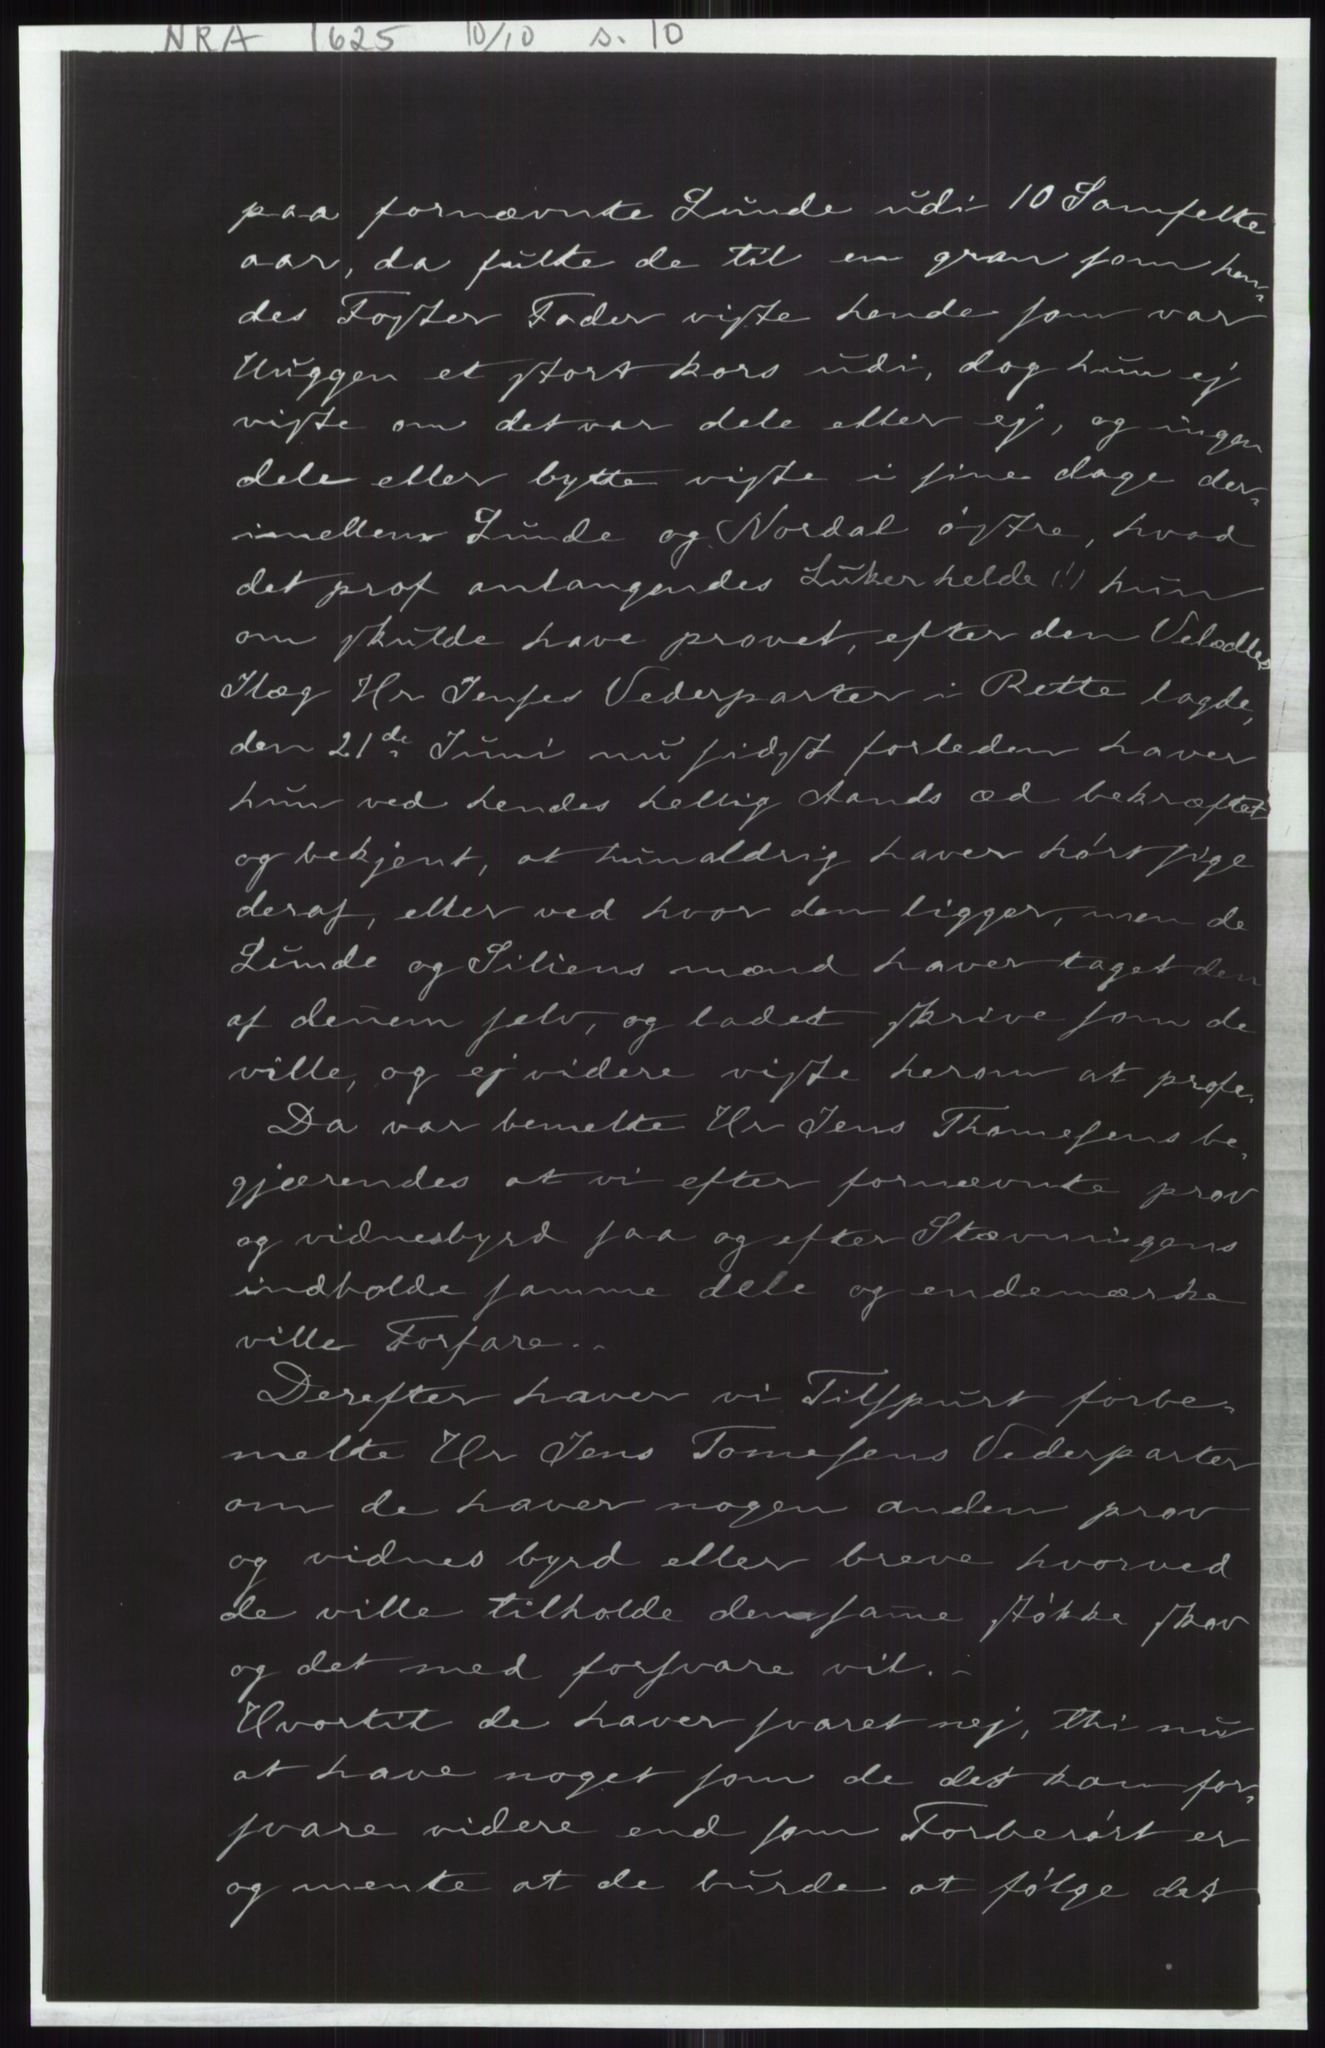 NRA 1625 10/10 s. 10
paa fornævnte Lunde udi 10 Samfelte
aar, da fulte de til en gran som hen-
des Foster Fader viste hende som var
Huggen et stort kors udi, dog hun ej
viste om det var dele eller ej, og ingen
dele eller bytte viste i sine dage der-
imellem Lunde og Nordal østre, hvad
det prof anlangendes Lukerhelde (!) hun
om skulde have provet, efter den Velædles
Ilæg Hr Jenses Vederparter i Rette lagde,
den 21de Juni nu sidst forleden haver
hun ved hendes hellig Aands æd bekræftet
og bekjent, at hun aldrig haver hørt sige
deraf, eller ved hvor den ligger, men de
Lunde og Siliens mænd haver taget den
af dennem selv, og ladet skrive som de
ville, og ej videre viste herom at profe.
Da var bemelte Hr Jens Thomesens be-
gjærendes at vi efter fornævnte prov
og vidnesbyrd paa og efter Stævningens
indholde samme dele og endemærke
ville Forfare..
Derefter haver vi Tilspurt forbe-
melte Hr Jens Tomesens Vederparter
om de haver nogen anden prov
og vidnes byrd eller breve hvorved
de ville tilholde dem same støkke skov
og det med forsvare vil.-
Hvortil de haver svaret nej, thi nu
at have noget som de det kan for-
svare videre end som Forberørt er
og mente at de burde at følge det